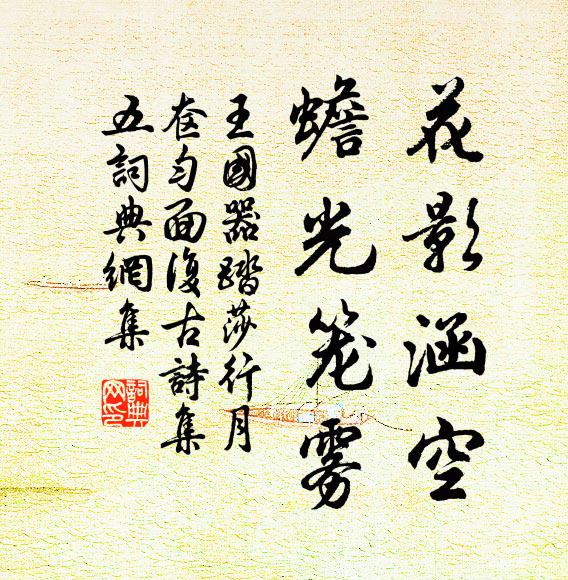 花影涵空
蟾光笼雾
王國器踏莎行月
奁匀面復古詩集
五詞典網集
詞典网印